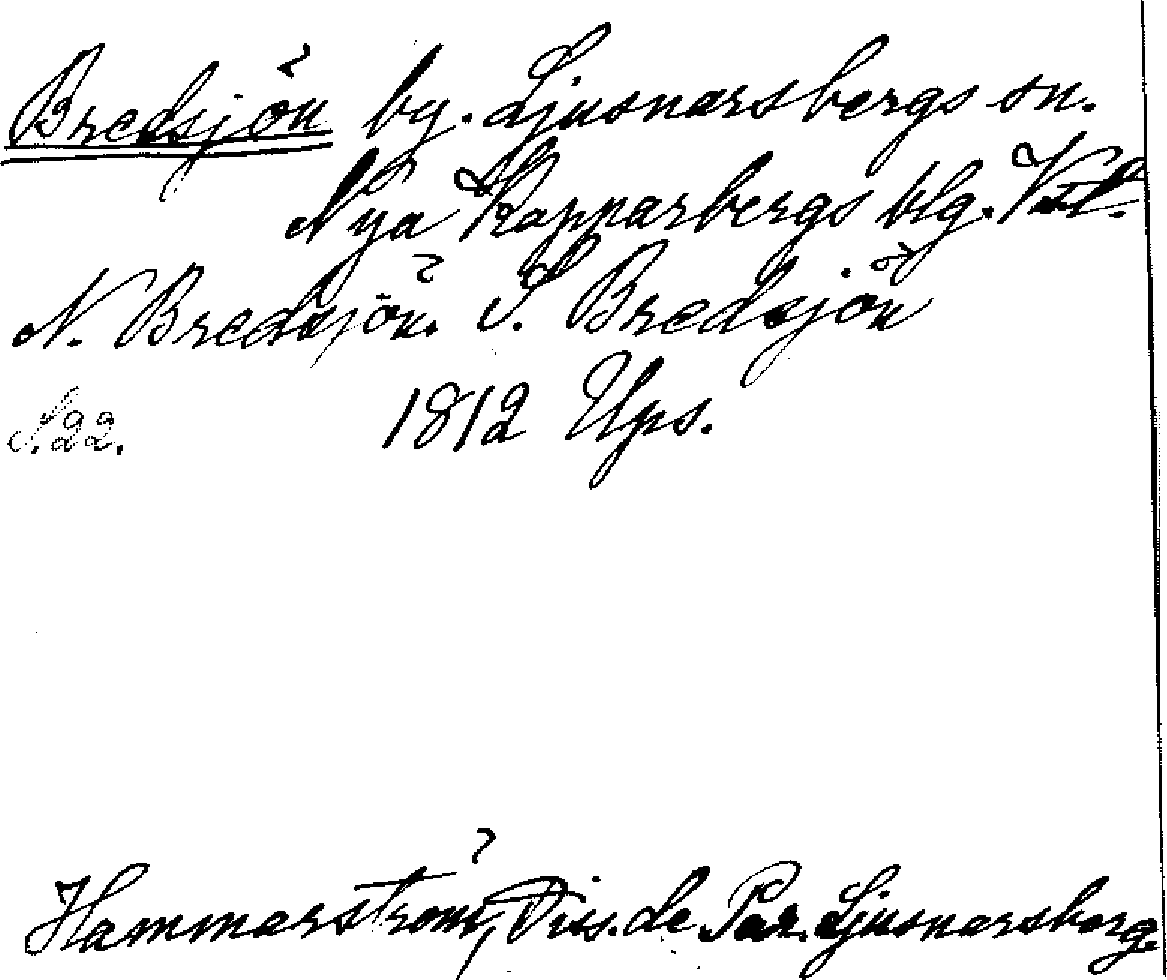 Bredsjön by. Ljusnarsbergs sn.
Nya Kopparbergs blg. Vstl.
N. Bredsjön. S. Bredsjön
S. 22. 1812 Ups.
Hammarström, Diss. de Par. Ljusnarsberg.